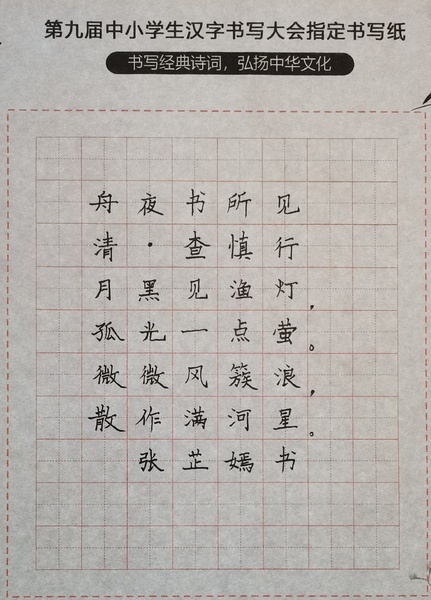 第九届中小学生汉字书写大会指定书写纸
书写经典诗词，弘扬中华文化
舟夜书所见
清·查慎行
月黑见渔灯，
孤光一点萤。
微微风簇浪，
散作满河星。
张芷嫣书